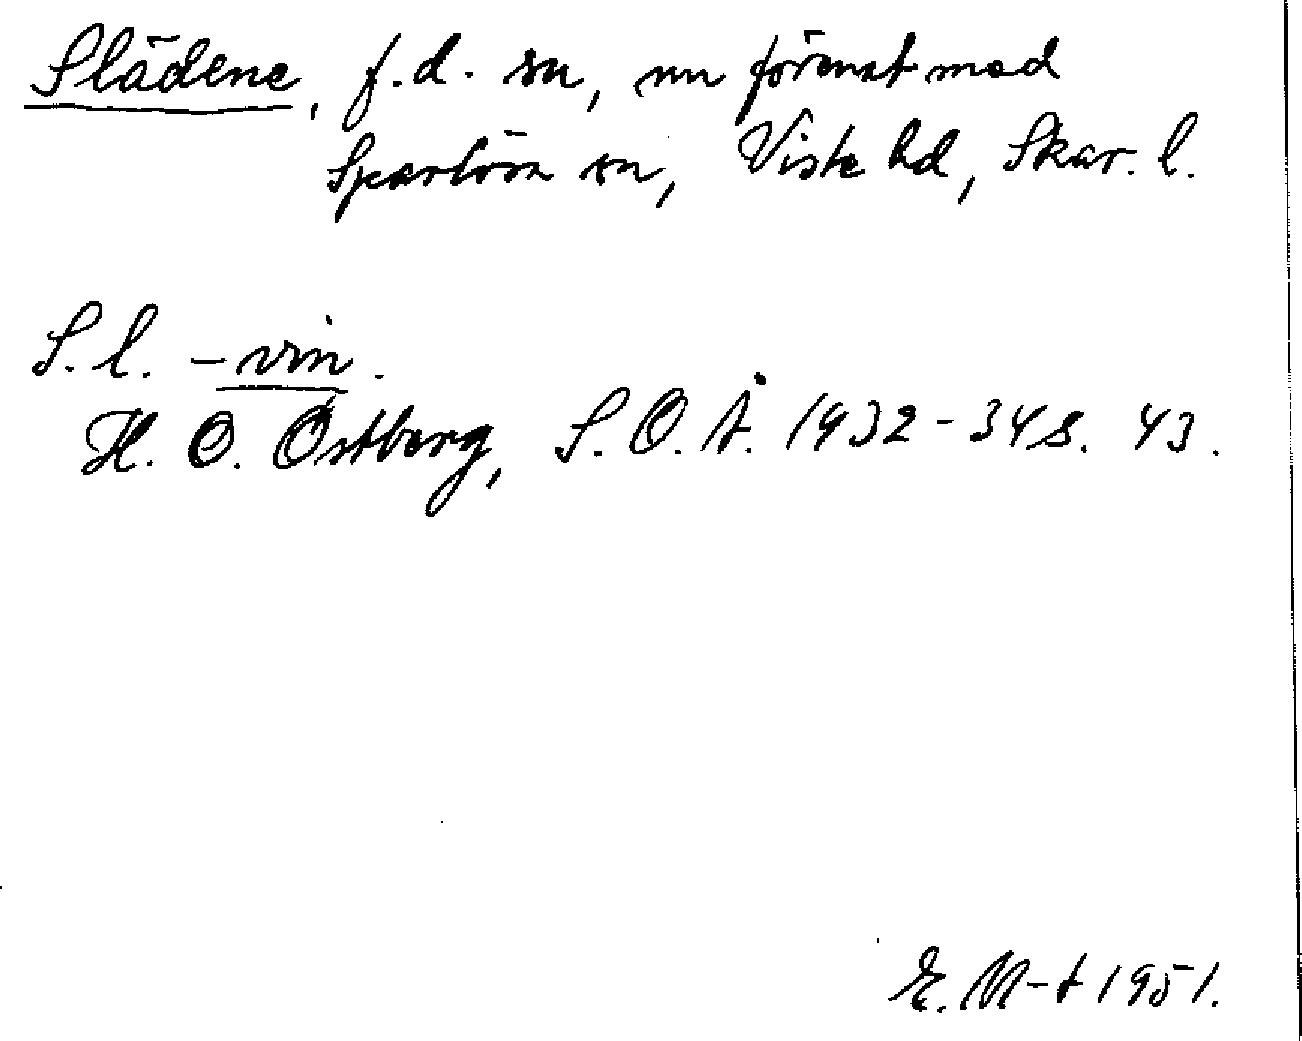 Slädene, f.d. sn, nu förenat med
Sparlösa sn, Viste hd, Skar. l.
S. l. -vin.
H. O. Östberg, S.O.Å. 1932-34 s. 43.
E. M-t 1951.